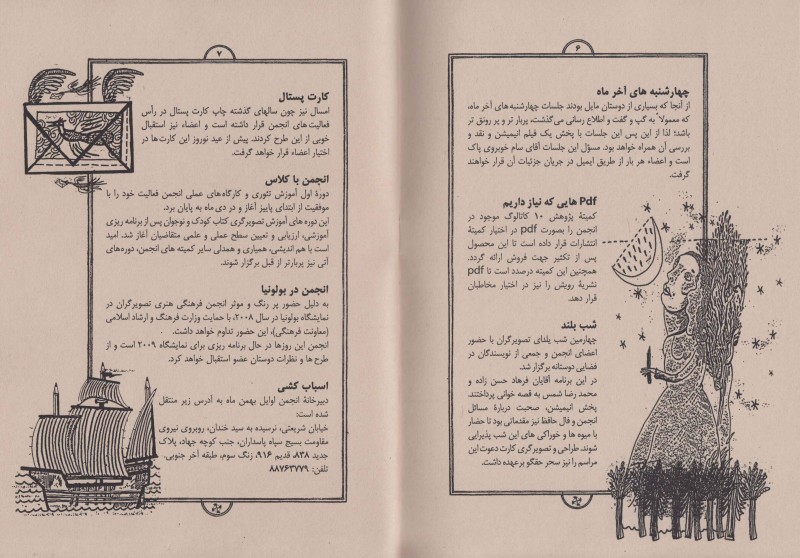 ۶
چهارشنبه های آخر ماه
از آنجا که بسیاری از دوستان مایل بودند جلسات چهارشنبه های آخر ماه،
که معمولاً به گپ و گفت و اطلاع رسانی می‌گذشت، پربار تر و پر رونق تر
باشد؛ لذا از این پس این جلسات با پخش یک فیلم انیمیشن و نقد و
بررسی آن همراه خواهد بود. مسؤل این جلسات آقای سام خوبروی پاک
است و اعضاء هر بار از طریق ایمیل در جریان جزئیات آن قرار خواهند
گرفت.
Pdf هایی که نیاز داریم
کمیتهٔ پژوهش ۱۰ کاتالوگ موجود در
انجمن را بصورت pdf در اختیار کمیتهٔ
انتشارات قرار داده است تا این محصول
پس از تکثیر جهت فروش ارائه گردد.
همچنین این کمیته درصدد است تا pdf
نشریهٔ رویش را نیز در اختیار مخاطبان
قرار دهد.
شب بلند
چهارمین شب یلدای تصویرگران با حضور
اعضای انجمن و جمعی از نویسندگان در
فضایی دوستانه برگزار شد.
در این برنامه آقایان فرهاد حسن زاده و
محمد رضا شمس به قصه خوانی پرداختند.
پخش انیمیشن، صحبت دربارهٔ مسائل
انجمن و فال حافظ نیز مقدماتی بود تا حضار
با میوه ها و خوراکی های این شب پذیرایی
شوند. طراحی و تصویرگری کارت دعوت این
مراسم را نیز سحر حقگو برعهده داشت.
۷
کارت پستال
امسال نیز چون سالهای گذشته چاپ کارت پستال در رأس
فعالیت های انجمن قرار داشته است و اعضاء نیز استقبال
خوبی از این طرح کردند. پیش از عید نوروز این کارت ها در
اختیار اعضاء قرار خواهد گرفت.
انجمن با کلاس
دورهٔ اول آموزش تئوری و کارگاه‌های عملی انجمن فعالیت خود را با
موفقیت از ابتدای پاییز آغاز و در دی ماه به پایان برد.
این دوره های آموزش تصویرگری کتاب کودک و نوجوان پس از برنامه ریزی
آموزشی، ارزیابی و تعیین سطح عملی و علمی متقاضیان آغاز شد. امید
است با هم اندیشی، همیاری و همدلی سایر کمیته های انجمن، دوره‌های
آتی نیز پربارتر از قبل برگزار شوند.
انجمن در بولونیا
به دلیل حضور پر رنگ و موثر انجمن فرهنگی هنری تصویرگران در
نمایشگاه بولونیا در سال ۲۰۰۸، با حمایت وزارت فرهنگ و ارشاد اسلامی
(معاونت فرهنگی)، این حضور تداوم خواهد داشت.
انجمن این روزها در حال برنامه ریزی برای نمایشگاه ۲۰۰۹ است و از
طرح ها و نظرات دوستان عضو استقبال خواهد کرد.
اسباب کشی
دبیرخانهٔ انجمن اوایل بهمن ماه به آدرس زیر منتقل
شده است:
خیابان شریعتی، نرسیده به سید خندان، روبروی نیروی
مقاومت بسیج سپاه پاسداران، جنب کوچه جهاد، پلاک
جدید ۸۳۸، قدیم ۹۱۶، زنگ سوم، طبقه آخر جنوبی.
تلفن: ۸۸۷۶۳۷۷۹